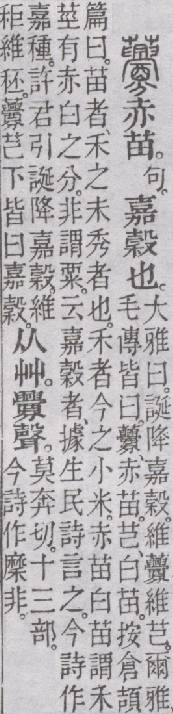 虋赤苗。句。嘉穀也。
大雅曰。誕降嘉穀。維虋維芑。爾雅、
毛傳皆曰。虋、赤苗。芑、白苗。按倉頡
篇曰。苗者、禾之未秀者也。禾者今之小米。赤苗白苗謂禾
莖有赤白之分。非謂粟。云嘉穀者、據生民詩言之。今詩作
嘉種。許君引誕降嘉穀、維
秬維秠。虋芑下皆曰嘉穀。
从艸。釁聲。
莫奔切。十三部。
今詩作穈、非。